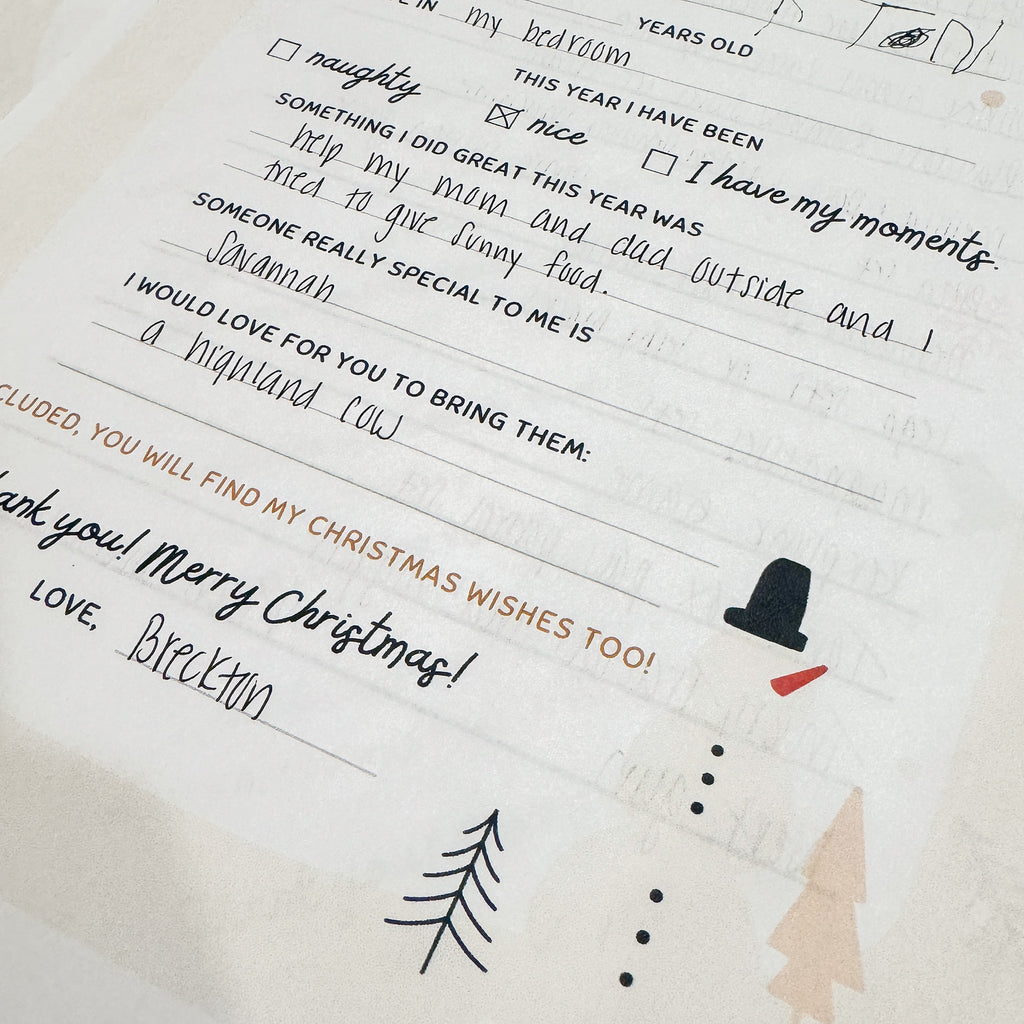 E IN my bedroom
YEARS OLD
THIS YEAR I HAVE BEEN
naughty nice I have my moments.
SOMETHING I DID GREAT THIS YEAR WAS
help my mom and dad outside and I
tried to give sunny food.
SOMEONE REALLY SPECIAL TO ME IS
Savannah
I WOULD LOVE FOR YOU TO BRING THEM:
a highland cow
CLUDED, YOU WILL FIND MY CHRISTMAS WISHES TOO!
ank you! Merry Christmas!
LOVE, Breckton